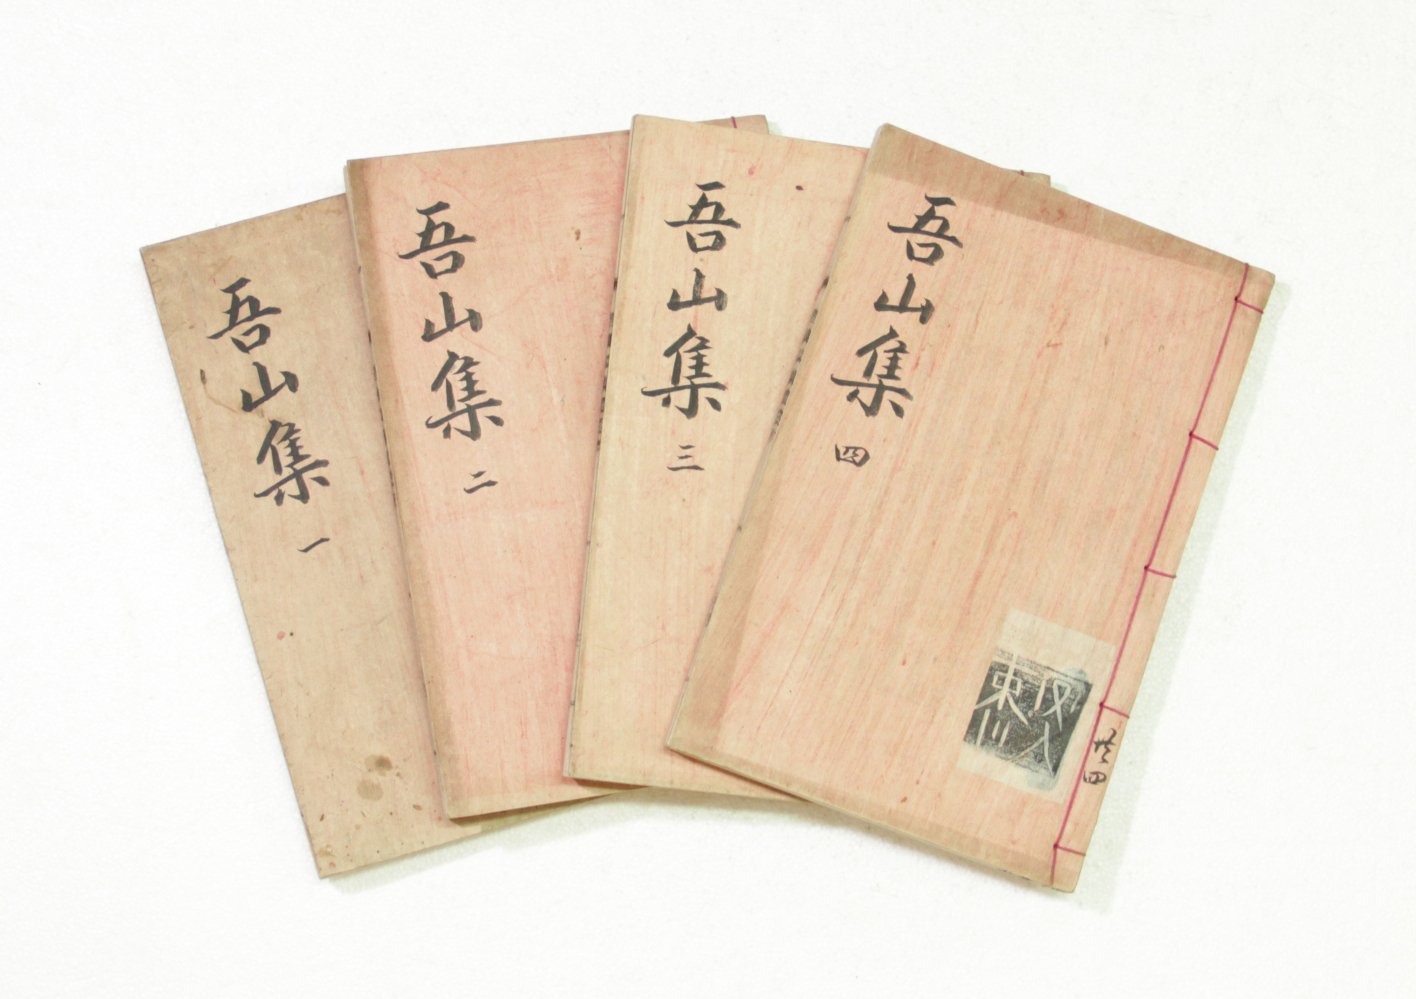 吾山集 一
吾山集 二
吾山集 三
吾山集 四
共四